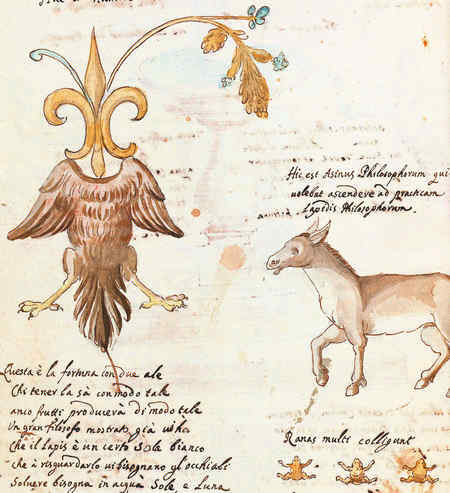 Hic est Asinus Philosophorum qui
uolebat ascendere ad practicam
Lapidis Philosophorum.
Questa è la fortuna con due ale
Chi tener la sà con modo tale
anco frutti producerà di modo tale
Un gran filosofo mostrato già
Che il lapis è un certo Sole bianco
che à risguardarlo ui bisognano gli occhiali
Soluere bisogna in acqua Sole, e Luna
Ranas multi colligunt